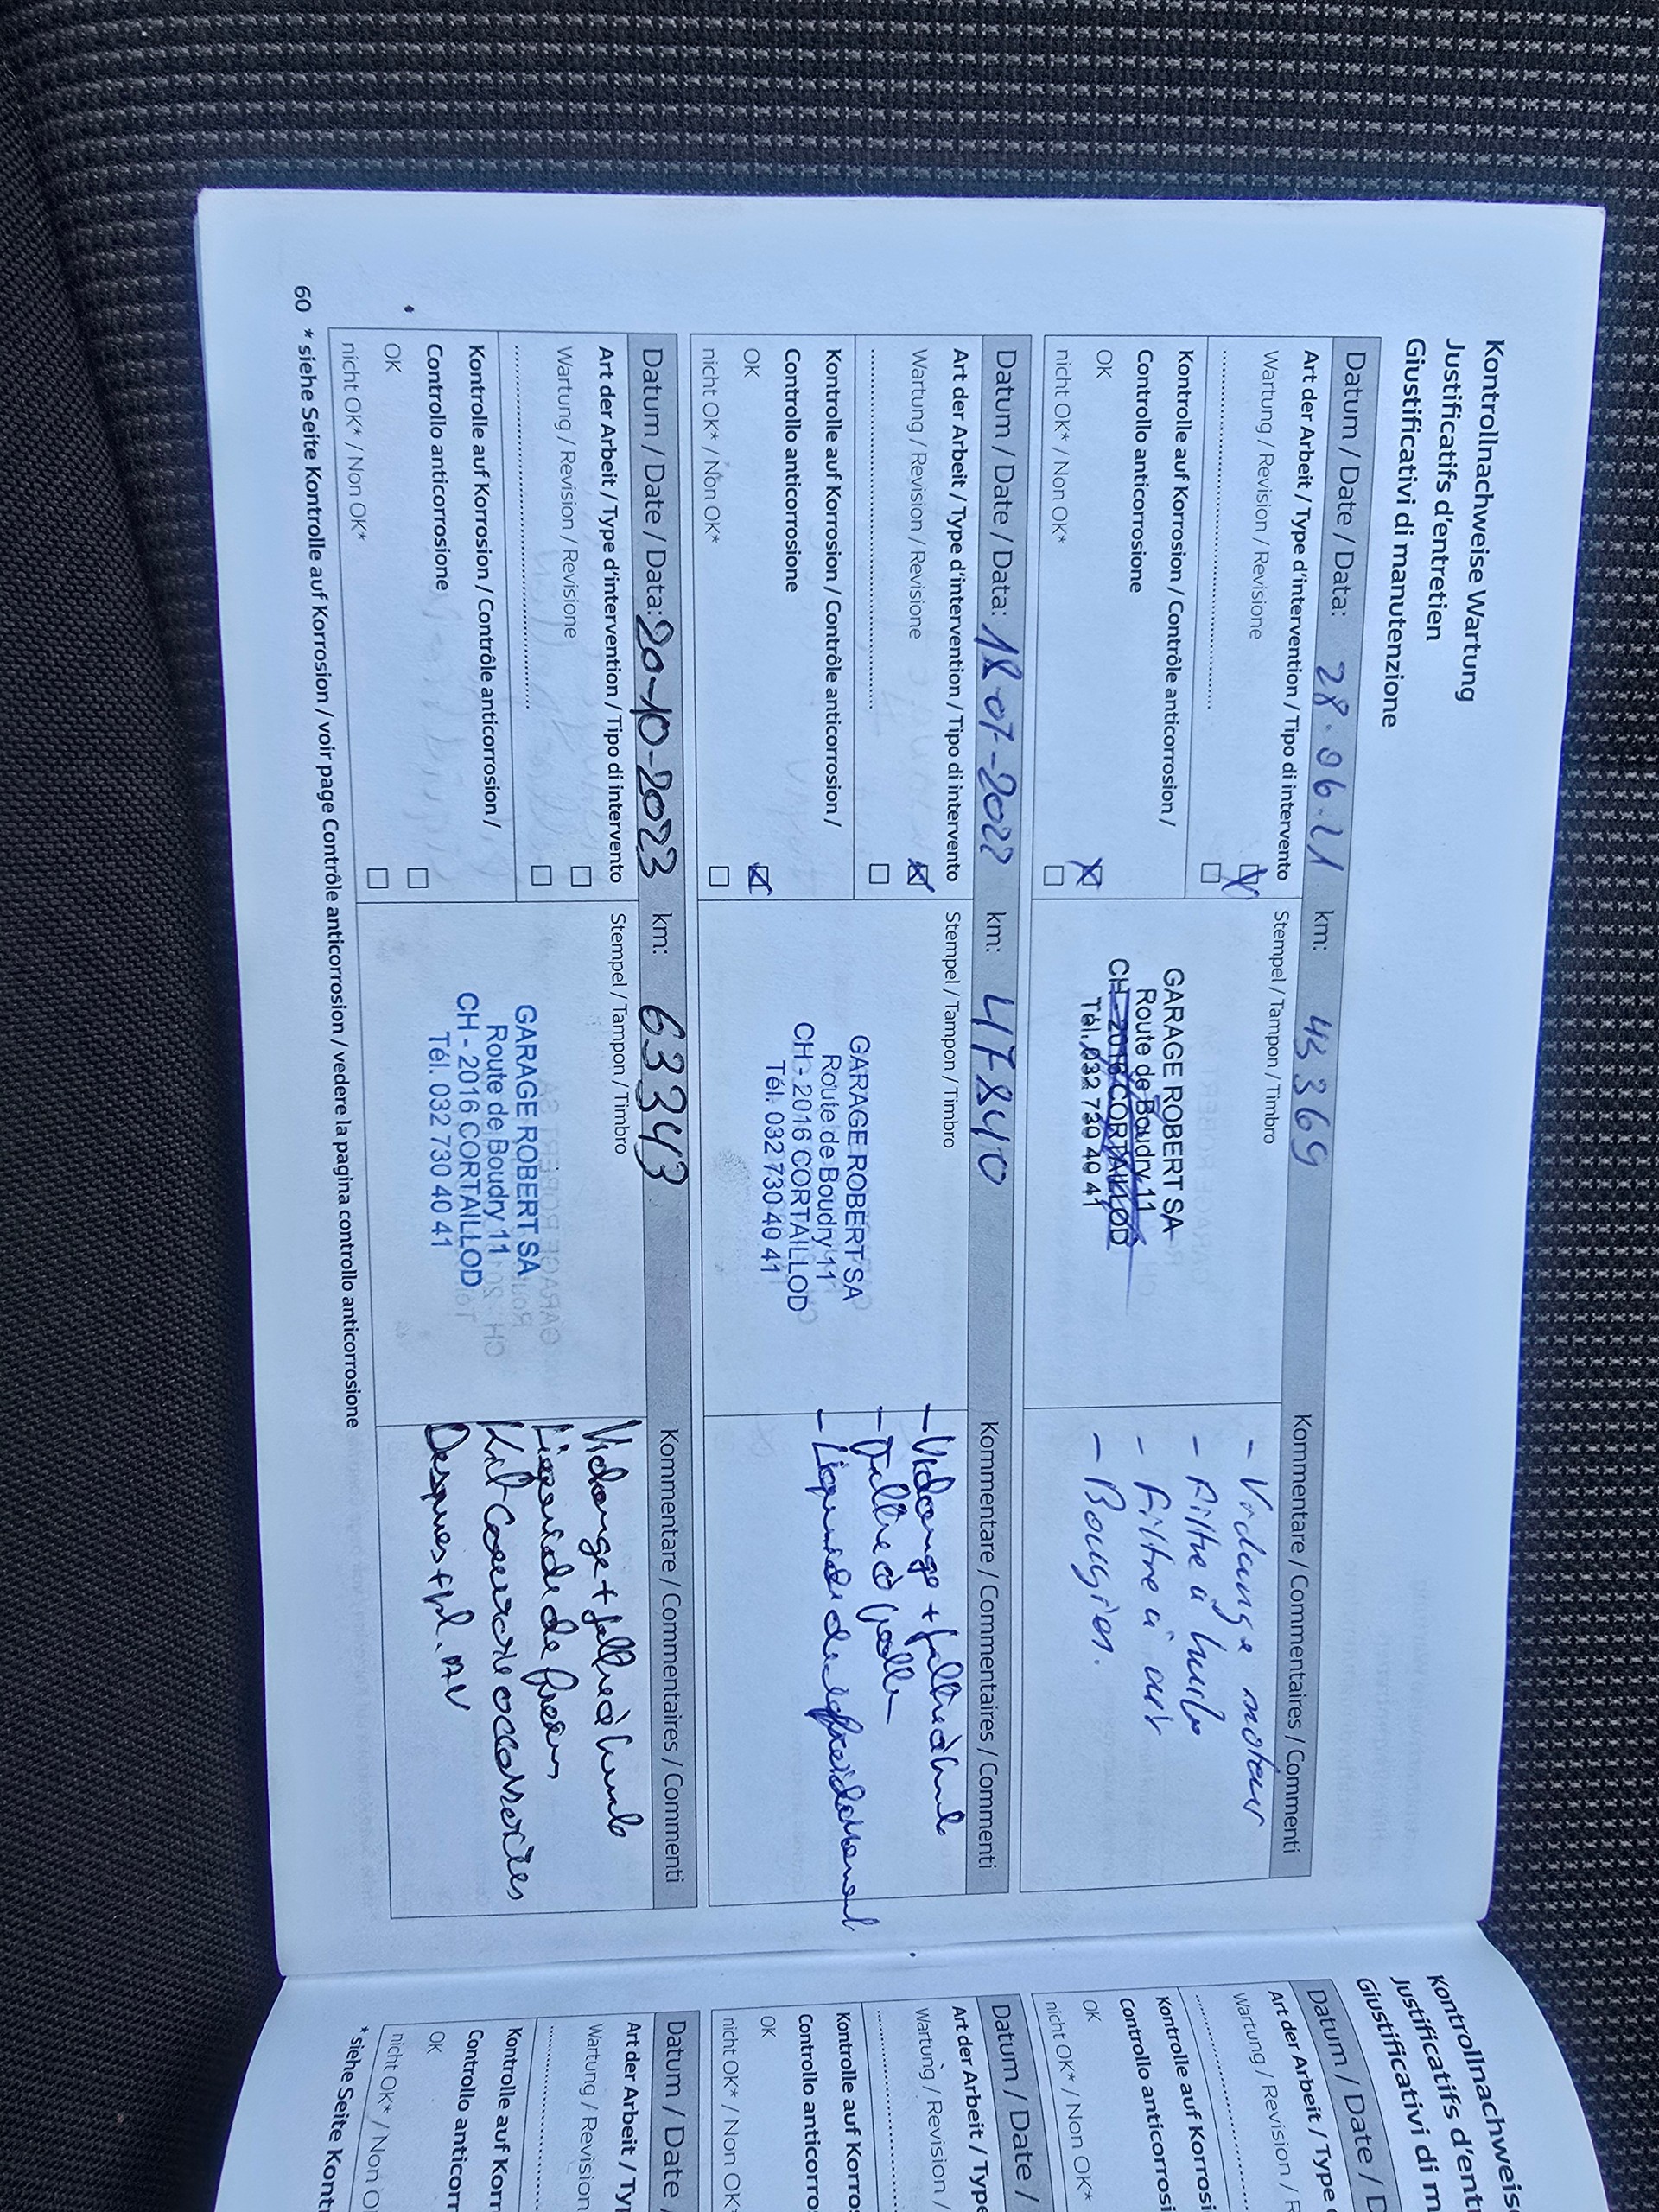 Kontrollnachweise Wartung
Justificatifs d'entretien
Giustificativi di manutenzione
Datum / Date / Data: 28.06.21 km: 43369 Kommentare / Commentaires / Commenti
Art der Arbeit / Type d'intervention / Tipo di intervento
Wartung / Revision / Revisione
Kontrolle auf Korrosion / Contrôle anticorrosion /
Controllo anticorrosione
OK
nicht OK* / Non OK*
Stempel / Tampon / Timbro
GARAGE ROBERT SA
Route de Boudry 11
CH - 2016 CORTAILLOD
Tél. 032 730 40 41
- Vidange moteur
- Filtre à huile
- Filtre à air
- Bougies.
Datum / Date / Data: 18-07-2022 km: 47840 Kommentare / Commentaires / Commenti
Art der Arbeit / Type d'intervention / Tipo di intervento
Wartung / Revision / Revisione
Kontrolle auf Korrosion / Contrôle anticorrosion /
Controllo anticorrosione
OK
nicht OK* / Non OK*
Stempel / Tampon / Timbro
GARAGE ROBERT SA
Route de Boudry 11
CH - 2016 CORTAILLOD
Tél. 032 730 40 41
- Vidange + filtre à huile
- Filtre à
- Liquide de refroidissement
Datum / Date / Data: 20-10-2023 km: 63343 Kommentare / Commentaires / Commenti
Art der Arbeit / Type d'intervention / Tipo di intervento
Wartung / Revision / Revisione
Kontrolle auf Korrosion / Contrôle anticorrosion /
Controllo anticorrosione
OK
nicht OK* / Non OK*
Stempel / Tampon / Timbro
GARAGE ROBERT SA
Route de Boudry 11
CH - 2016 CORTAILLOD
Tél. 032 730 40 41
Vidange + filtre à huile
Liquide de frein
Kit Courroie accessoires
Disques + pl. AV
60 * siehe Seite Kontrolle auf Korrosion / voir page Contrôle anticorrosion / vedere la pagina controllo anticorrosione
Kontrollnachweis
Justificatifs d'ent
Giustificativi di m
Datum / Date / D
Art der Arbeit / Type
Wartung / Revision / R
Kontrolle auf Korrosi
Controllo anticorrosi
OK
nicht OK* / Non OK*
Datum / Date /
Art der Arbeit / Type
Wartung / Revision /
Kontrolle auf Korro
Controllo anticorro
OK
nicht OK* / Non OK*
Datum / Date
Art der Arbeit / Ty
Wartung / Revision
Kontrolle auf Korr
Controllo anticorr
OK
nicht OK* / Non O
* siehe Seite Kont